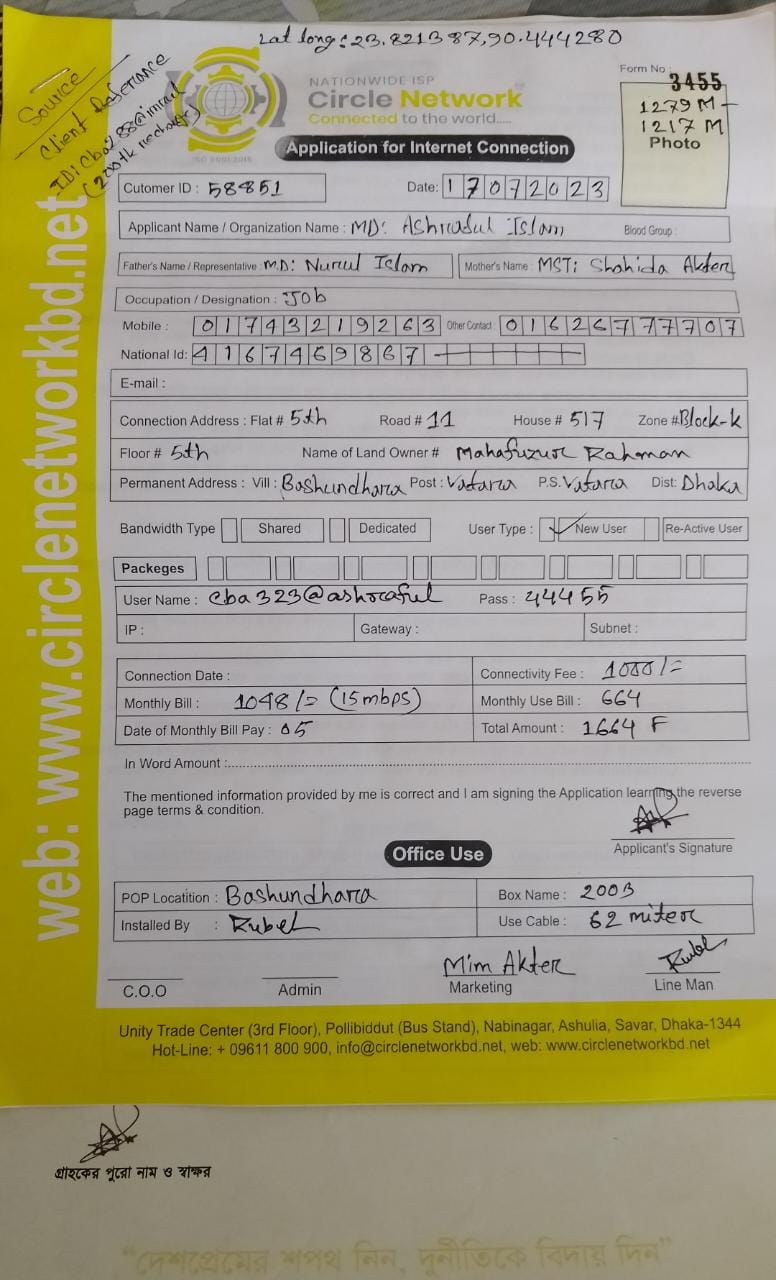 Lat long: 23.821387,90.444280
Source
Client Referance
ID: Cba288@imrul
(200tk recharge)
NATIONWIDE ISP
Circle Network
Connected to the world.....
ISO 9001:2015
Form No : 3455
1279 M
1217 M
Photo
Application for Internet Connection
Cutomer ID : 58851
Date: 17072023
Applicant Name / Organization Name : MD: Ashraful Islam Blood Group :
Father's Name / Representative : MD: Nurul Islam Mother's Name : MST: Shahida Akter
Occupation / Designation : Job
Mobile : 01743219263 Other Contact : 01626777707
National Id: 4167469867
E-mail :
Connection Address : Flat # 5th Road # 11 House # 517 Zone # Block-k
Floor # 5th Name of Land Owner # Mahafuzur Rahman
Permanent Address : Vill : Bashundhara Post : Vatara P.S. Vatara Dist: Dhaka
Bandwidth Type Shared Dedicated User Type : New User Re-Active User
Packeges
User Name : cba323@ashraful Pass : 44455
IP : Gateway : Subnet :
Connection Date : Connectivity Fee : 1000/=
Monthly Bill : 1048/= (15mbps) Monthly Use Bill : 664
Date of Monthly Bill Pay : 05 Total Amount : 1664 F
In Word Amount :
The mentioned information provided by me is correct and I am signing the Application learning the reverse
page terms & condition.
Applicant's Signature
Office Use
POP Locatition : Bashundhara Box Name : 200B
Installed By : Rubel Use Cable : 62 miter
Mim Akter Rubel
C.O.O Admin Marketing Line Man
Unity Trade Center (3rd Floor), Pollibiddut (Bus Stand), Nabinagar, Ashulia, Savar, Dhaka-1344
Hot-Line: + 09611 800 900, info@circlenetworkbd.net, web: www.circlenetworkbd.net
web: www.circlenetworkbd.net
গ্রাহকের পুরো নাম ও স্বাক্ষর
“দেশপ্রেমের শপথ নিন, দুর্নীতিকে বিদায় দিন”